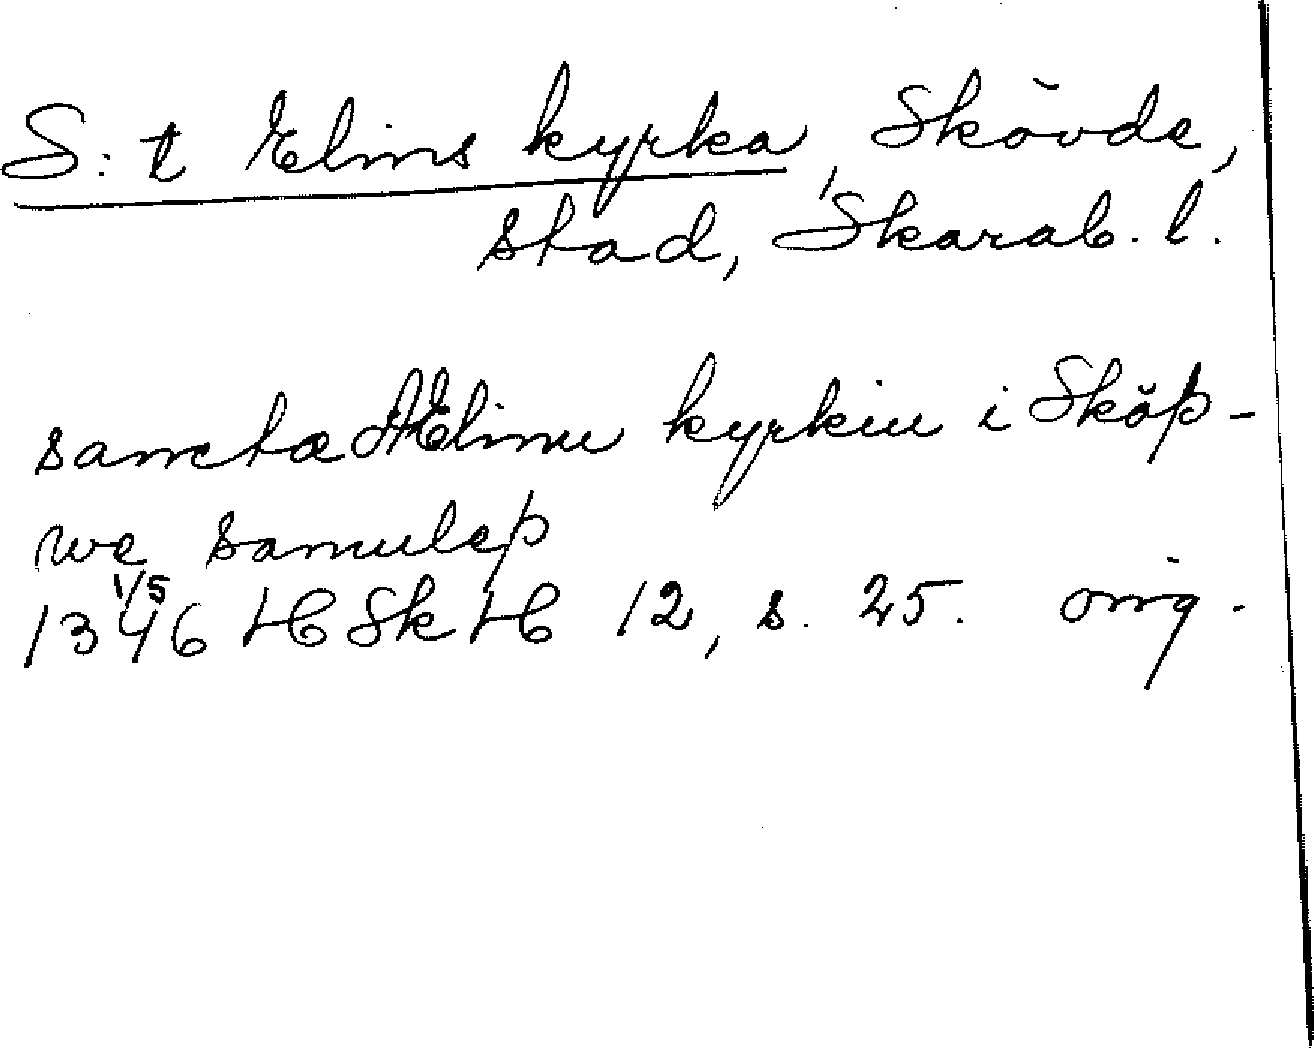 S:t Elins kyrka, Skövde,
stad, Skarab. l.
sancta Ælinu kyrkiu i Sköþ-
we samuleþ
1346 1/5 HSkH 12, s. 25. orig.